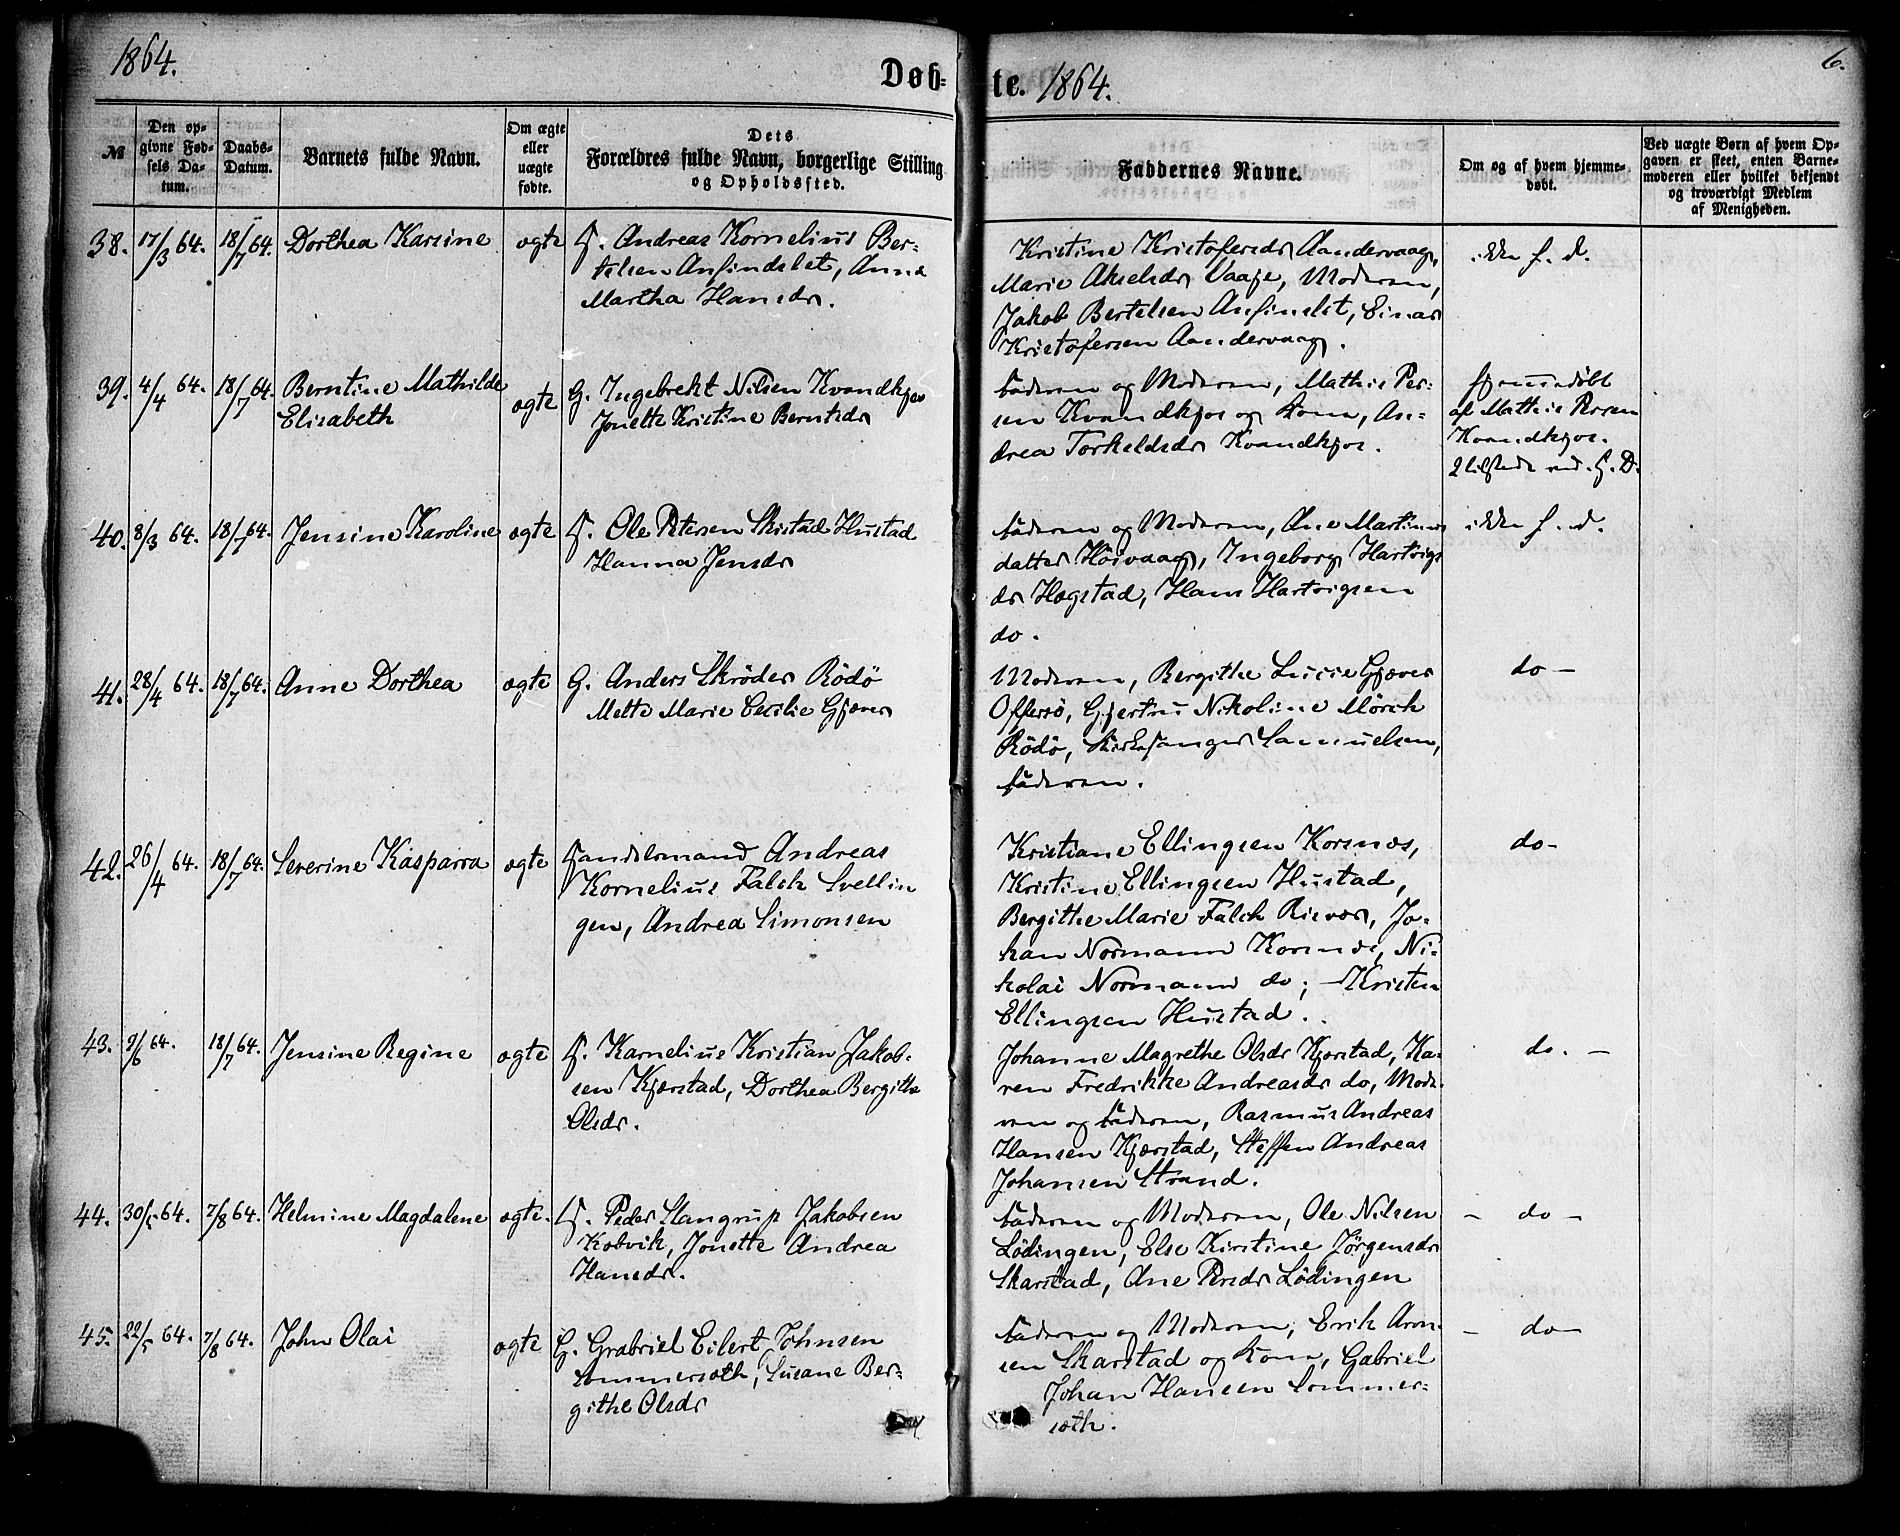 1864.
Døb-
te. 1864.
6.
№
Den op-
givne Fød-
sels Da-
tum.
Daabs-
Datum.
Barnets fulde Navn.
Om ægte
eller
uægte
fødte.
Dets
Forældres fulde Navn, borgerlige Stilling
og Opholdssted.
Faddernes Navne.
Om og af hvem hjemme-
døbt.
Ved uægte Børn af hvem Op-
gaven er skeet, enten Barne-
moderen eller hvilket bekjendt
og troværdigt Medlem
af Menigheden.
38. 17/3 64. 18/7 64. Dorthea Karsine ægte G. Andreas Kornelius Ber-
telsen Anfindslet, Anna
Martha Hansdr.
Kristine Kristofersdr Aandervaag,
Marie Akselsdr Vaaje, Moderen,
Jakob Bertelsen Anfinslet, Einar
Kristofersen Aandervaag.
ikke h. d.
39. 4/4 64. 18/7 64. Berntine Mathilde
Elisabeth
ægte G. Ingebrekt Nilsen Kvandkjos
Jonette Kristine Berntsdr
Faderen og Moderen, Mathis Per-
sen Kvandkjos og Kone, An-
drea Torkeldsdr Kvandkjos.
hjemmedøbt
af Mathis Persen
Kvandkjos.
2 tilstede ved H. D.
40. 8/3 64. 18/7 64. Jensine Karoline ægte G. Ole Petersen Skistad Hustad
Hanna Jensdr
Faderen og Moderen, Ane Martinus
datter Höivaag, Ingeborg Hartvigs
dr Hægstad, Hans Hartvigsen
do.
ikke h. d.
41. 28/4 64. 18/7 64. Anne Dorthea ægte G. Anders Skrøder Rödö
Mette Marie Cecilie Gjæver
Moderen, Bergithe Lucie Gjæver
Offersö, Gjertru Nikoline Mörch
Rödö, Kirkesanger Samuelsen,
Faderen.
do —
42. 26/4 64. 18/7 64. Severine Kasparra ægte Handelsmand Andreas
Kornelius Falch Svellin
gen, Andrea Simonsen
Kristiane Ellingsen Korsnæs,
Kristine Ellingsen Hustad,
Bergithe Marie Falch Risvær, Jo-
han Normann Korsnæs, Ni-
kolai Normann do; Kristen
Ellingsen Hustad.
do-
43. 9/6 64. 18/7 64. Jensine Regine ægte G. Karnelius Kristian Jakob-
sen Kjærstad, Dorthea Bergithe
Olsdr.
Johanne Magrethe Olsdr Kjærstad, Ka-
ren Fredrikke Andreasdr do, Mode-
ren og Faderen, Rasmus Andreas
Hansen Kjærstad, Steffen Andreas
Johansen Strand.
do. —
44. 30/5 64. 7/8 64. Helmine Magdalene ægte. G. Peder Slangrup Jakobsen
Kobvik, Jonette Andrea
Hansdr.
Faderen og Moderen, Ole Nilsen
Lödingen, Else Kirstine Jørgensdr
Skarstad, Ane Persdr Lödingen
— do —
45. 22/5 64. 7/8 64. John Olai ægte G. Grabriel Eilert Johnsen
Sommersæth, Susane Ber-
githe Olsdr
Faderen og Moderen, Erik Aron-
sen Skarstad og Kone, Gabriel
Johan Hansen Sommer-
sæth.
— do —